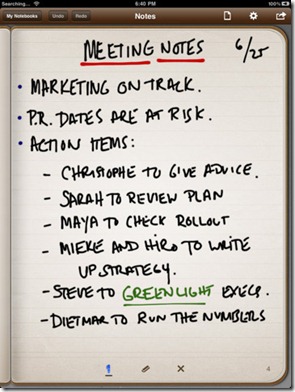 Searching... 6:40 PM 100%
My Notebooks Undo Redo Notes
MEETING NOTES 6/25
• MARKETING ON TRACK.
• P.R. DATES ARE AT RISK.
• ACTION ITEMS:
- CHRISTOPHE TO GIVE ADVICE.
- SARAH TO REVIEW PLAN
- MAYA TO CHECK ROLLOUT
- MIEKE AND HIRO TO WRITE
UP STRATEGY.
- STEVE TO GREENLIGHT EXECS.
- DIETMAR TO RUN THE NUMBERS
4